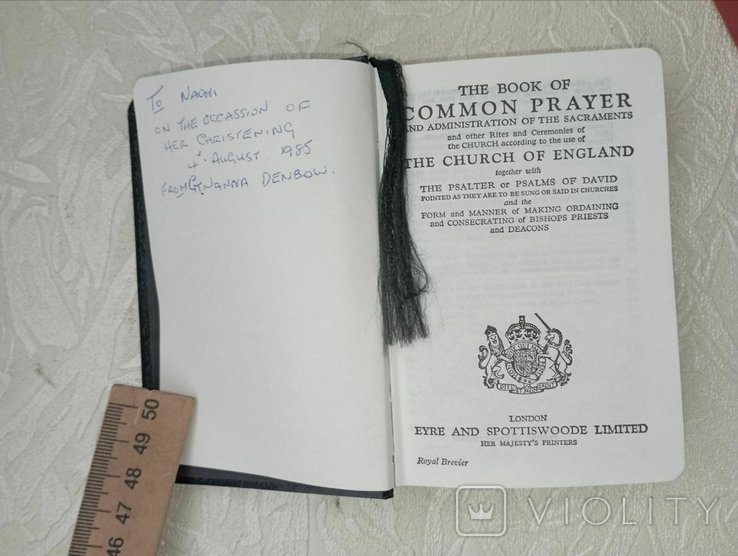 To NAOMI
ON THE OCCASSION OF
HER CHRISTENING
4th AUGUST. 1985
FROM NANNA DENBOW.
THE BOOK OF
COMMON PRAYER
AND ADMINISTRATION OF THE SACRAMENTS
and other Rites and Ceremonies of
the CHURCH according to the use of
THE CHURCH OF ENGLAND
together with
THE PSALTER or PSALMS OF DAVID
POINTED AS THEY ARE TO BE SUNG OR SAID IN CHURCHES
and the
FORM and MANNER of MAKING ORDAINING
and CONSECRATING of BISHOPS PRIESTS
and DEACONS
LONDON
EYRE AND SPOTTISWOODE LIMITED
HER MAJESTY'S PRINTERS
Royal Brevier
46 47 48 49 50
VIOLITY